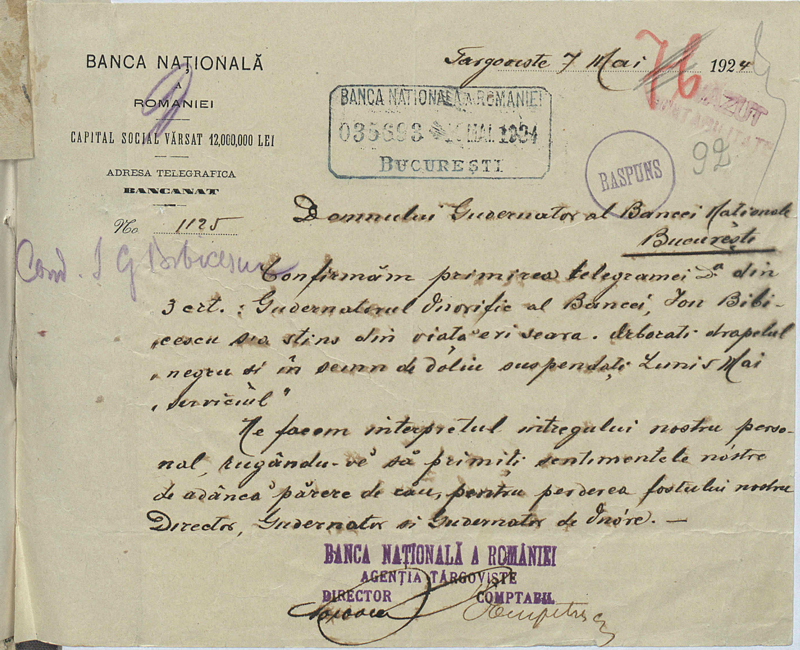 BANCA NAŢIONALĂ
A
ROMANIEI
CAPITAL SOCIAL VĂRSAT 12,000,000 LEI
ADRESA TELEGRAFICA
BANCANAT
No 1125
Targoviste 7 Mai 1924
76
BANCA NATIONALA A ROMANIEI
MAI. 1924
BUCUREŞTI
RASPUNS
92
Domnului Guvernator al Bancei Nationale
Bucureşti
Cond. I G Bibicescu
Confirmăm primirea telegramei Dv din
3 crt. : Guvernatorul Onorific al Bancei, Ion Bibi-
cescu s'a stins din viata eri seara. Arborati drapelul
negru si în semn de doliu suspendaţi Luni 5 Mai
serviciul"
Ne facem interpretul intregului nostru perso-
nal, rugându-vă să primiti sentimentele nóstre
de adâncă părere de rău, pentru perderea fostului nostru
Director, Guvernator si Guvernator de Onóre. —
BANCA NAŢIONALĂ A ROMÂNIEI
AGENŢIA TÂRGOVIŞTE
DIRECTOR COMPTABIL